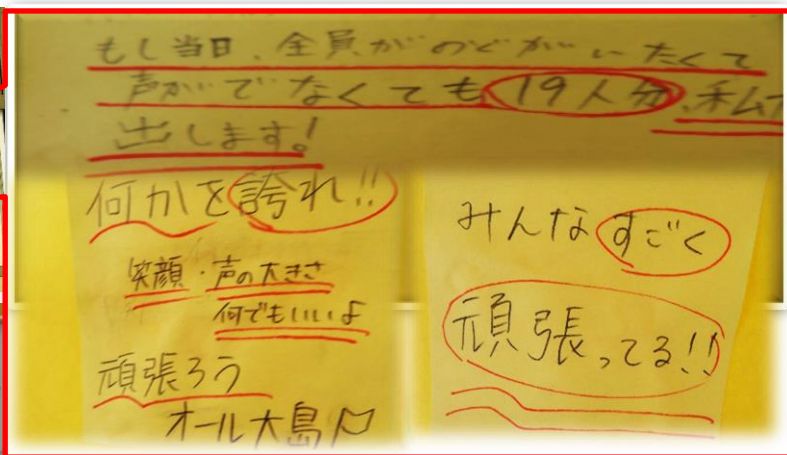 もし当日、全員がのどがいたくて
声がでなくても19人分、私が
出します!
何かを誇れ!!
笑顔・声の大きさ
何でもいいよ
頑張ろう
オール大島
みんなすごく
頑張ってる!!